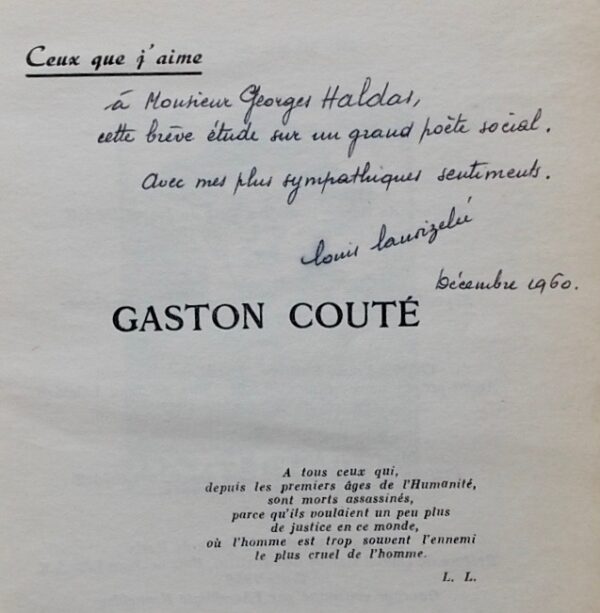 Ceux que j'aime
à Monsieur Georges Haldas,
cette brève étude sur un grand poète social.
Avec mes plus sympathiques sentiments.
Louis Lanoizelée
Décembre 1960.
GASTON COUTÉ
A tous ceux qui,
depuis les premiers âges de l'Humanité,
sont morts assassinés,
parce qu'ils voulaient un peu plus
de justice en ce monde,
où l'homme est trop souvent l'ennemi
le plus cruel de l'homme.
L. L.